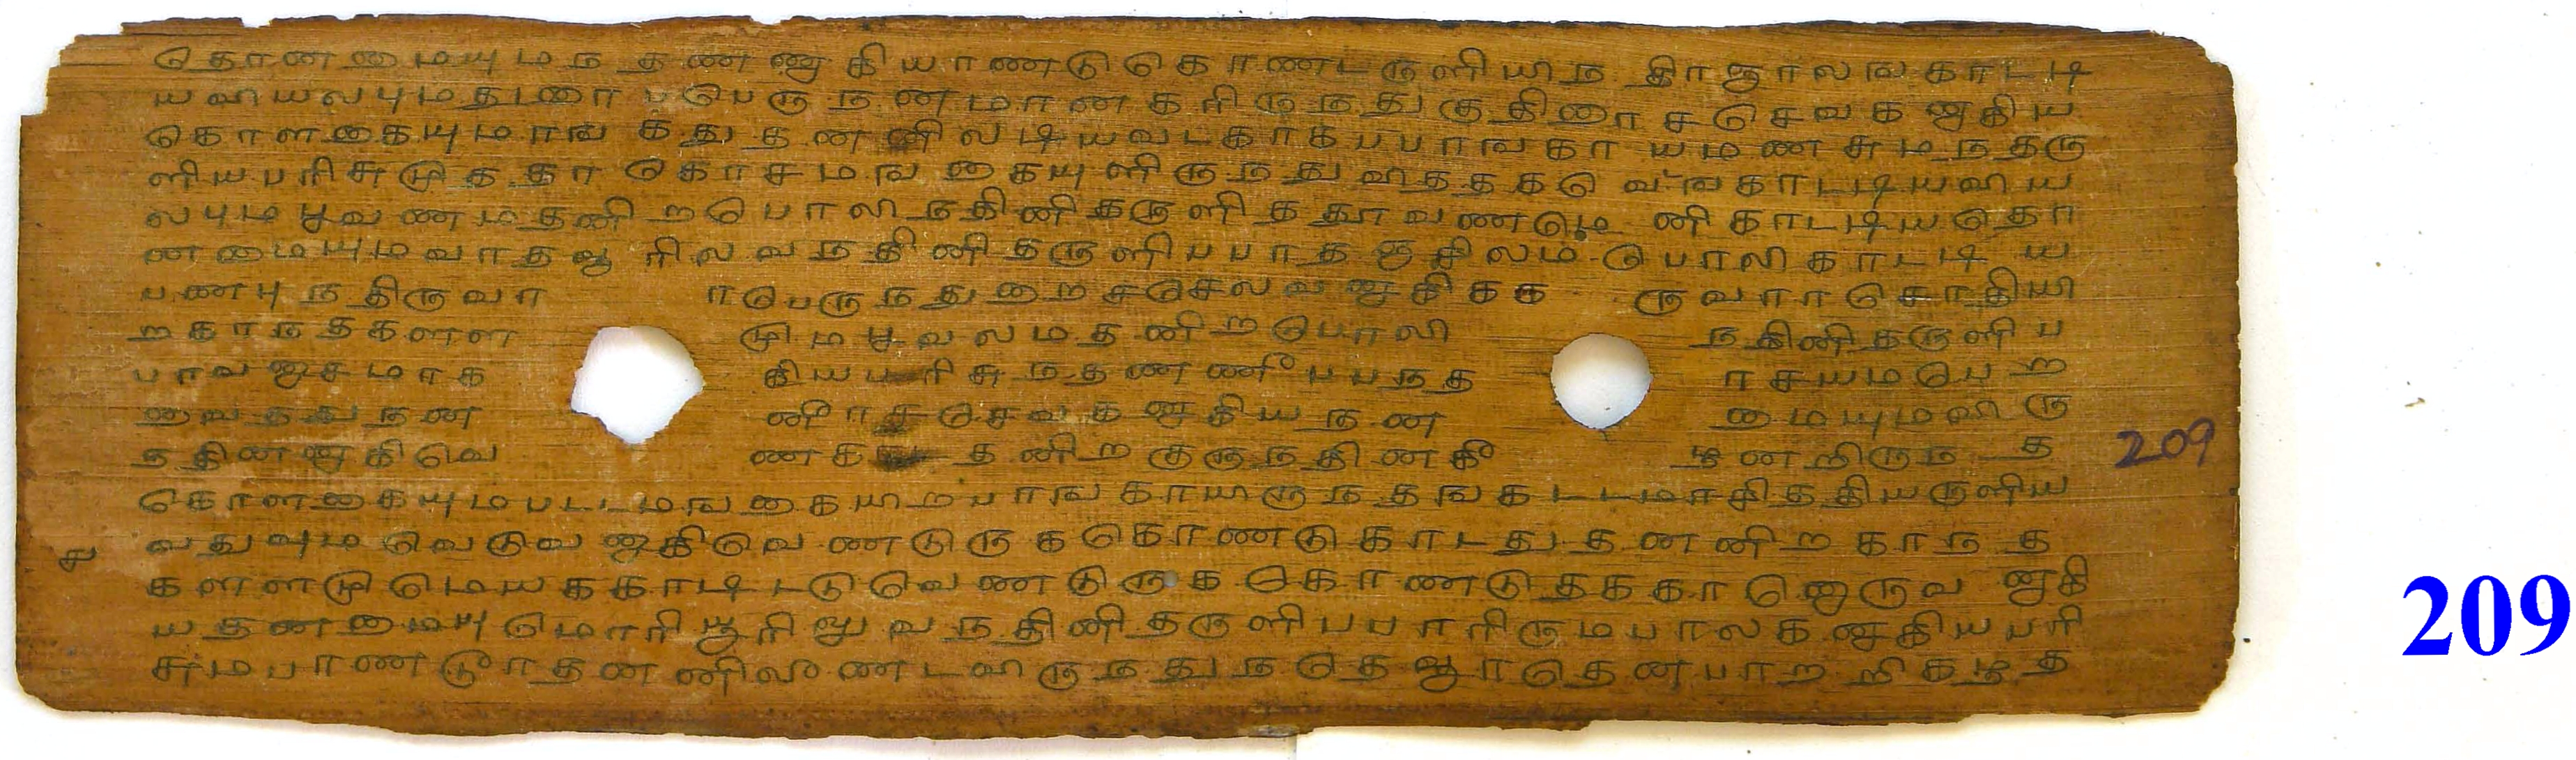 தொனமையுமநதணனாகியாணடுகொணடருளியிநதிரஞாலஙகாடடி
யவியலபுமதுரைபபெருநனமாநகரிருநதுகுதிரைசசெவகனாகிய
கொளகையுமாஙகதுதனனிலடியவடகாகபபாஙகாயமணசுமநதரு
ளியபரிசுமுததரகொசமஙகையுளிருநதுவிததகவெடஙகாடடியவிய
லபுமபூவணமதனிறபொலிநதினிதருளிததூவணமெனிகாடடியதொ
னமையுமவாதவூரிலவநதினிதருளிபபாதசசிலமபொலிகாடடிய
பணபுநதிருவாரபெருநதுறைசசெலவனாகிககருவாரசொதியி
றகரநதகளளமுமபூவலமதனிறபொலிநதினிதருளிப
பாவநாசமாககியபரிசுநதணணீரபபநதரசயமபெற
வைததுநனனீரசசெவகனாகியநனமையுமவிரு
நதினனாகிவெணகாடதனிறகுருநதினகீழனறிருநத
கொளகையுமபடடமஙகையிறபாஙகாயிருநதஙகடடமாசிததியருளிய
வதுவுமவெடுவனாகிவெணடுருககொணடுகாடதுதனனிறகரநத
களளமுமெயககாடடிடடுவெணடுருககொணடுதககானொருவனாகி
யதனமையுமொரியூரிலுவநதினிதருளிபபாரிருமபாலகனாகியபரி
சுமபாணடூரதனனிலீணடவிருநதுநதெவூரதெனபாறறிகழத